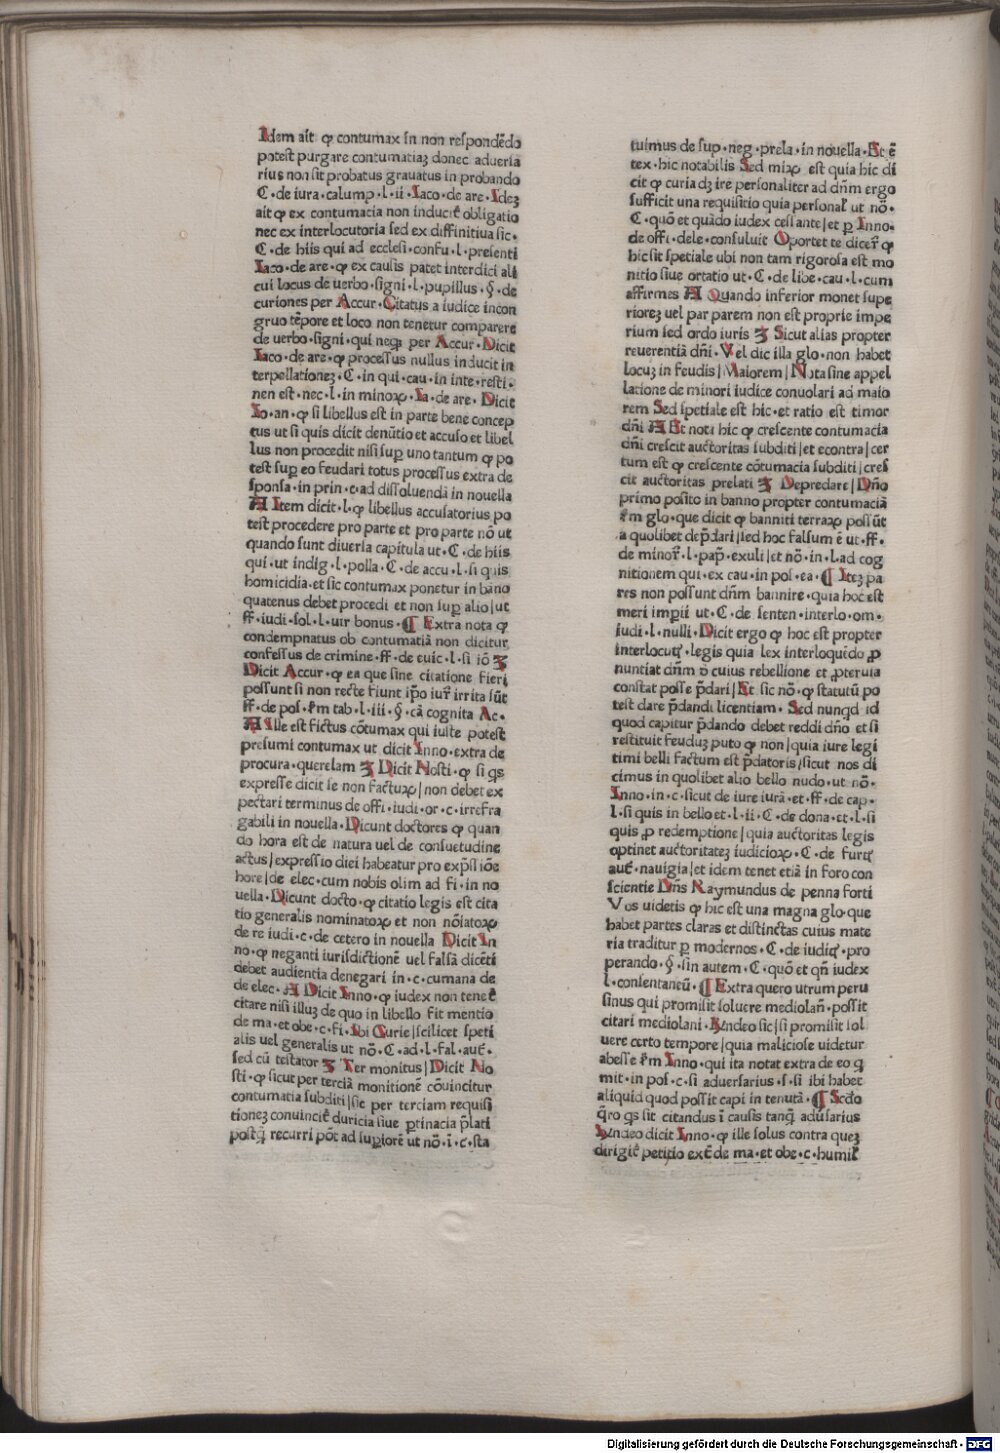 Idem ait ꝙ contumax in non respondēdo
potest purgare contumatiaꝫ donec aduersa
rius non sit probatus grauatus in probando
C · de iura · calump · l · ii · Iaco · de are · Ideꝫ
ait ꝙ ex contumacia non inducit̄ obligatio
nec ex interlocutoria sed ex diffinitiua sic ·
C · de hiis qui ad ecclesi · confu · l · presenti
Iaco · de are · ꝙ ex causis patet interdici ali
cui locus de uerbo · signi · l · pupillus · § · de
curiones per Accur · Citatus a iudice incon
gruo tēpore et loco non tenetur comparere
de uerbo · signi · qui neqꝫ per Accur · Dicit
Iaco · de are · ꝙ processus nullus inducit in
terpellationeꝫ · C · in qui · cau · in inte · resti ·
nen est · nec · l · in minoꝝ · Ia · de are · Dicit
Io · an · ꝙ si libellus est in parte bene concep
tus ut si quis dicit denūtio et accuso et libel
lus non procedit nisi suꝑ uno tantum ꝙ po
test suꝑ eo feudari totus processus extra de
sponsa · in prin · c · ad dissoluendā in nouella
A Item dicit · l · ꝙ libellus accusatorius po
test procedere pro parte et pro parte nō ut
quando sunt diuersa capitula ut · C · de hiis
qui · ut indig · l · polla · C · de accu · l · si quis
homicidia · et sic contumax ponetur in bāno
quatenus debet procedi et non suꝑ alio | ut
ff · iudi · sol · l · uir bonus · ¶ Extra nota ꝙ
condempnatus ob contumatiā non dicitur
confessus de crimine · ff · de euic · l · si iō ℨ
Dicit Accur · ꝙ ea que sine citatione fieri
possunt si non recte fiunt ip̄o iur̄ irrita sūt
ff · de pos · s̄m tab · l · iii · § · cā cognita Ac ·
A Ille est fictus cōtumax qui iuste potest
presumi contumax ut dicit Inno · extra de
procura · querelam ℨ Dicit Nosti · ꝙ si q̄s
expresse dicit se non facturꝝ | non debet ex
pectari terminus de offi · iudi · or · c · irrefra
gabili in nouella · Dicunt doctores ꝙ quan
do hora est de natura uel de consuetudine
actus | expressio diei habeatur pro exp̄ssiōe
hore | de elec · cum nobis olim ad fi · in no
uella · Dicunt docto · ꝙ citatio legis est cita
tio generalis nominatoꝝ et non nōiatoꝝ
de re iudi · c · de cetero in nouella Dicit In
no · ꝙ neganti iurisdictionē uel falsā dicēti
debet audientia denegari in · c · cumana de
de elec · A Dicit Inno · ꝙ iudex non tenet̄
citare nisi illuꝫ de quo in libello fit mentio
de ma · et obe · c · fi · Ibi Curie | scilicet speti
alis uel generalis ut nō · C · ad · l · fal · aut̄ ·
sed cū testator ℨ Ter monitus | Dicit No
sti · ꝙ sicut per terciā monitionē cōuincitur
contumatia subditi | sic per terciam requisi
tioneꝫ conuincit̄ duricia siue ꝑtinacia p̄lati
postq̄ recurri pōt ad suꝑiorē ut nō · ī · c · sta
tuimus de sup · neg · prela · in nouella · Et ē
tex · hic notabilis Sed miꝝ est quia hic di
cit ꝙ curia dꝫ ire personaliter ad dn̄m ergo
sufficit una requisitio quia personal̄ ut nō ·
C · quō et quādo iudex cessante | et ꝑ Inno ·
de offi · dele · consuluit Oportet te dicer̄ ꝙ
hic sit spetiale ubi non tam rigorosa est mo
nitio siue ortatio ut · C · de libe · cau · l · cum
affirmes A Quando inferior monet supe
rioreꝫ uel par parem non est proprie impe
rium sed ordo iuris ℨ Sicut alias propter
reuerentiā dn̄i · Vel dic illa glo · non habet
locuꝫ in feudis | Maiorem | Nota sine appel
latione de minori iudice conuolari ad maio
rem Sed spetiale est hic · et ratio est timor
dn̄i A Et nota hic ꝙ crescente contumacia
dn̄i crescit auctoritas subditi | et econtra | cer
tum est ꝙ crescente cōtumacia subditi | cres
cit auctoritas prelati ℨ Depredare | Dn̄o
primo posito in banno propter contumaciā
s̄m glo · que dicit ꝙ banniti terraꝝ possūt
a quolibet dep̄dari | sed hoc falsum ē ut · ff ·
de minor̄ · l · pap̄ · exuli | et nō · in · l · ad cog
nitionem qui · ex cau · in pos · ea · ¶ Iteꝫ pa
res non possunt dn̄m bannire · quia hoc est
meri imperii ut · C · de senten · interlo · om ·
iudi · l · nulli · Dicit ergo ꝙ hoc est propter
interlocut̄ · legis quia lex interloquēdo ꝓ
nuntiat dn̄m ō cuius rebellione et ꝓteruia
constat posse p̄dari | Et sic nō · ꝙ statutū po
test dare p̄dandi licentiam · Sed nunqd id
quod capitur p̄dando debet reddi dn̄o et si
restituit feuduꝫ puto ꝙ non | quia iure legi
timi belli factum est p̄datoris | sicut nos di
cimus in quolibet alio bello nudo · ut nō ·
Inno · in · c · sicut de iure iurā · et · ff · de cap ·
l · si quis in bello et · l · ii · C · de dona · et · l · si
quis ꝓ redemptione | quia auctoritas legis
optinet auctoritateꝫ iudicioꝝ · C · de furt̄
aut̄ · nauigia | et idem tenet etiā in foro con
scientie Dn̄s Raymundus de penna forti
Vos uidetis ꝙ hic est una magna glo · que
habet partes claras et distinctas cuius mate
ria traditur ꝑ modernos · C · de iudic̄ · pro
perando · § · sin autem · C · quō et qn̄ iudex
l · consentaneū · ¶ Extra quero utrum peru
sinus qui promisit soluere mediolan̄ · possit
citari mediolani · R̄ndeo sic | si promisit sol
uere certo tempore | quia maliciose uidetur
abesse s̄m Inno · qui ita notat extra de eo q̄
mit · in pos · c · si aduersarius · s · si ibi habet
aliquid quod possit capi in tenutā · ¶ Scd̄o
q̄ro q̄s sit citandus ī causis tanq̄ adūsarius
R̄ndeo dicit Inno · ꝙ ille solus contra queꝫ
dirigit̄ petitio ext̄ de ma · et obe · c · humil̄
Digitalisierung gefördert durch die Deutsche Forschungsgemeinschaft - DFG